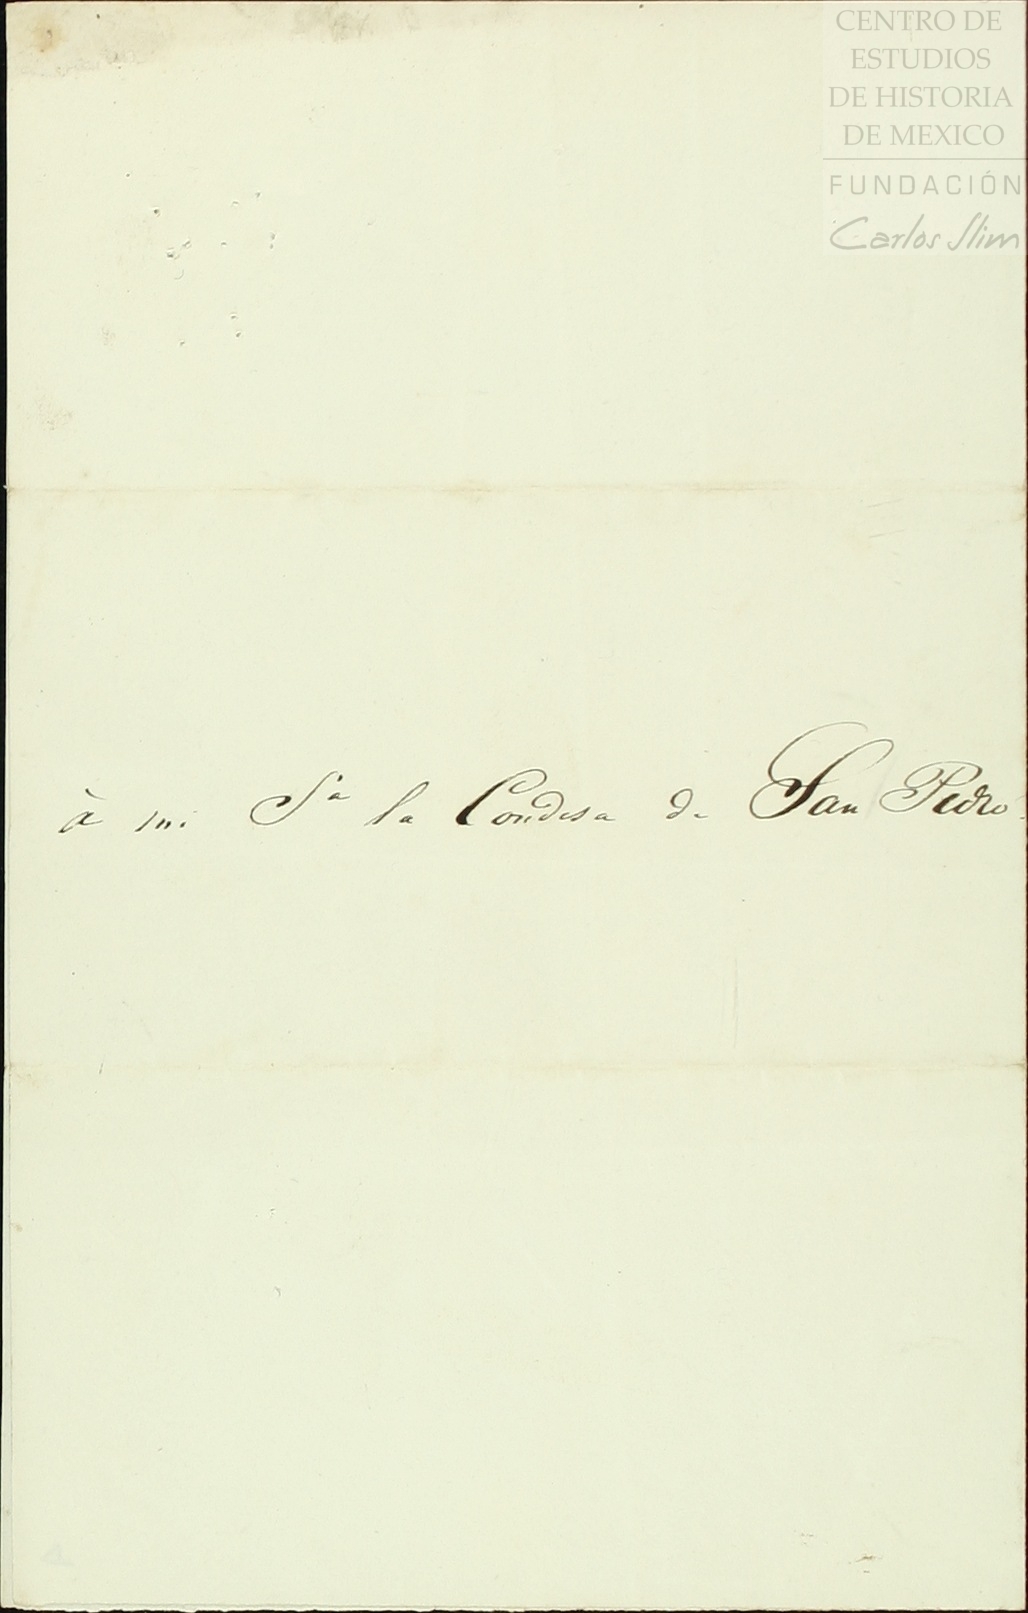 CENTRO DE
ESTUDIOS
DE HISTORIA
DE MEXICO
FUNDACIÓN
Carlos Slim
à mi Sª la Condesa de San Pedro